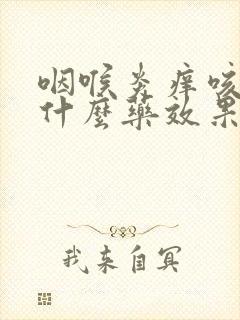 咽喉炎痒咳
什麼藥效果
我来自冥